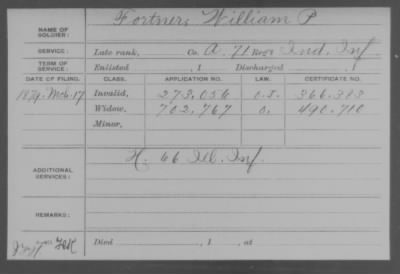 NAME OF SOLDIER: Fortner, William P
SERVICE: Late rank, Co. A. 71 Reg't Ind. Inf
TERM OF SERVICE: Enlisted , 1 Discharged , 1
DATE OF FILING. CLASS. APPLICATION NO. LAW. CERTIFICATE NO.
1879. Mch. 17 Invalid, 273,056 O.S. 366.383
Widow, 702,767 O. 490.710
Minor,
ADDITIONAL SERVICES: H. 66 Ill. Inf.
REMARKS:
Died , 1 , at